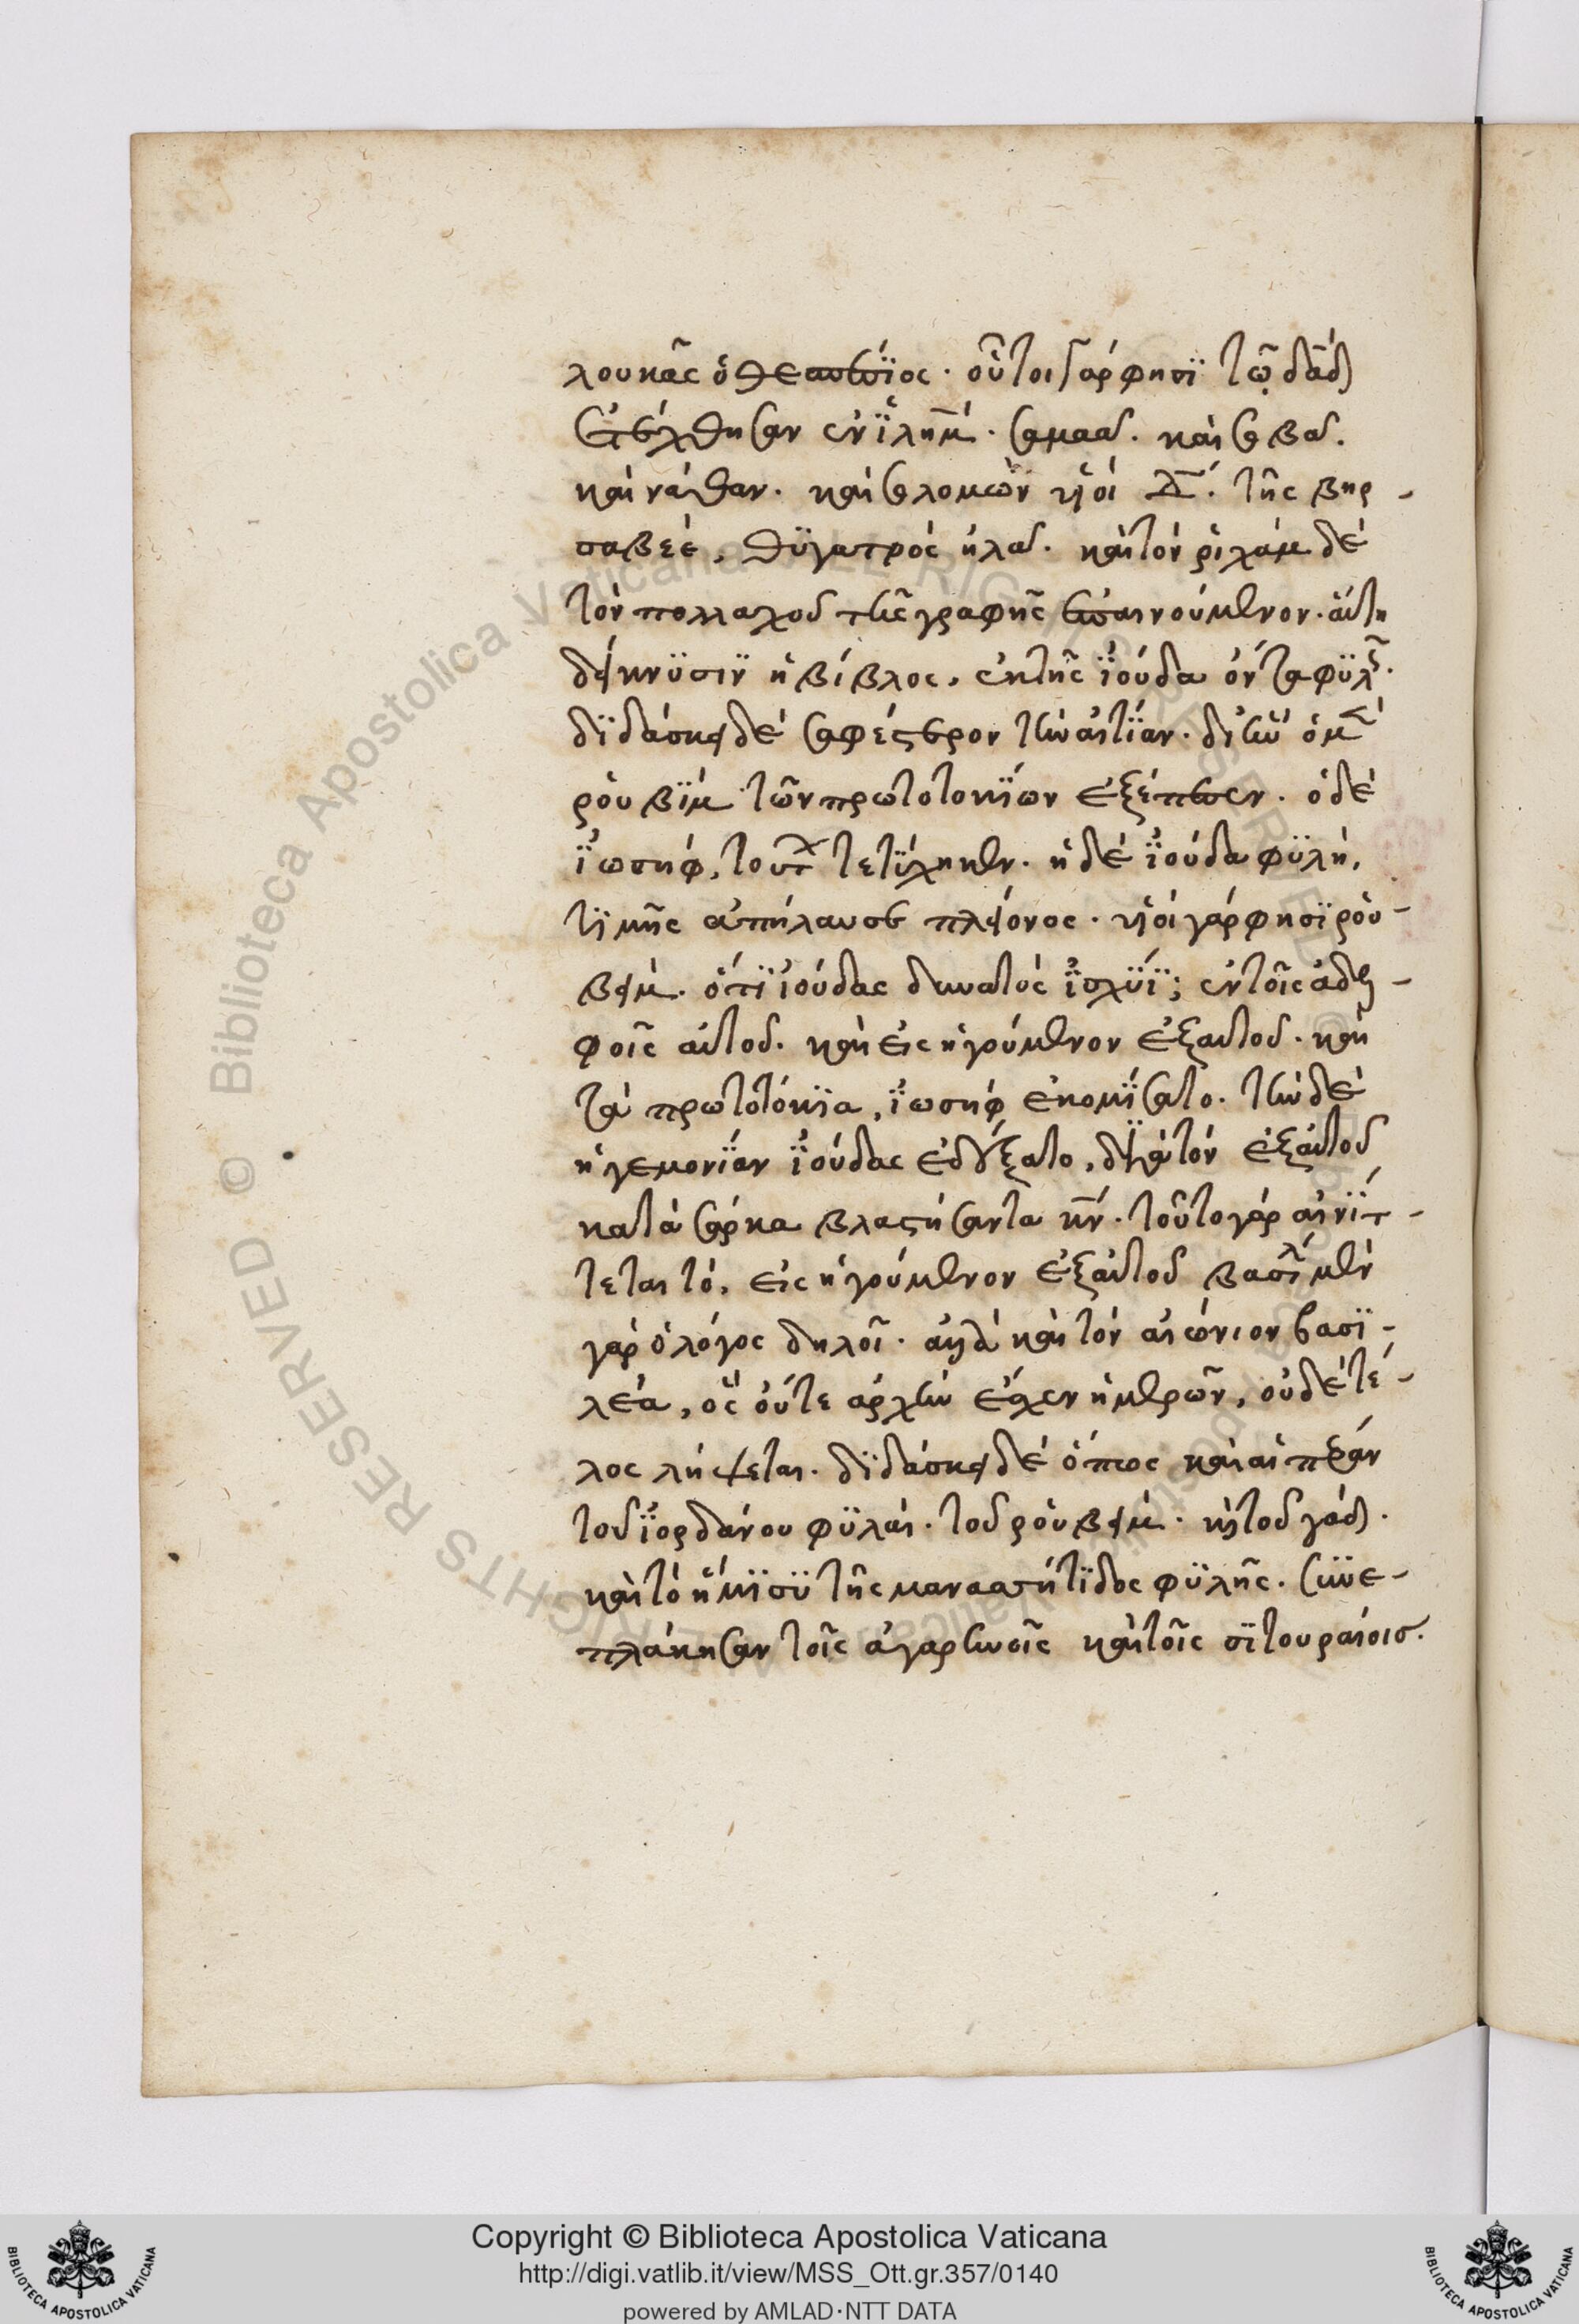 λουκᾶς ὁ θεσπέσϊος· οὗτοι γάρ φησϊ τῷ δᾱδ
ἐτέχθησαν ἐν ϊλῆμ· σαμαα· καὶ σοβαδ·
καὶ νάθαν· καὶ σολομών υἱοί δ̄· τῆς βηρ-
σαβεέ, θϋγατρός ἠλαδ· καὶ τόν ῥιχάμ δέ
τόν πολλαχοῦ τῆς γραφῆς ἐπαινούμενον· αὕτη
δείκνϋσιν ἡ βίβλος, ἐκ τῆς ϊούδα ὄντα φϋλῆς·
δϊδάσκει δέ σαφέστερον τὴν αἰτίαν· δι' ἣν ὁ μὲν
ῥουβϊμ τῶν πρωτοτοκϊων ἐξέπεσεν· ὁ δέ
ϊωσήφ, τούτων τετϋχηκεν· ἡ δέ ϊούδα φϋλή,
τϊμῆς ἀπήλαυσε πλείονος· υἱοί γάρ φησϊ ῥου-
βείμ· ὅτϊ ϊούδας δυνατός ϊσχϋϊ; ἐν τοῖς ἀδελ-
φοῖς αὐτοῦ· καὶ εἰς ἡγούμενον ἐξ αὐτοῦ· καὶ
τά πρωτοτόκϊα, ϊωσήφ ἐκομϊσατο· τὴν δέ
ἡγεμονϊαν ϊούδας ἐδέξατο, διά τόν ἐξ αὐτοῦ
κατά σάρκα βλαστήσαντα κ̄ν̄· τοῦτο γάρ αἰνϊτ-
τεται τό, εἰς ἡγούμενον ἐξ αὐτοῦ βασιλ μέν
γάρ ὁ λόγος δηλοῖ· ἀλλά καὶ τόν αἰώνιον βασϊ-
λέα, ὅς οὔτε ἀρχήν ἔχεν ἡμερῶν, οὐδέ τέ-
λος λήψεται· δϊδάσκει δέ ὅπως καὶ αἱ πέραν
τοῦ ϊορδάνου φϋλαί· τοῦ ῥουβείμ· καὶ τοῦ γάδ·
καὶ τό ἥμϊσϋ τῆς μανασήτϊδος φϋλῆς· συνε-
πλάκησαν τοῖς ἀγαρηνοῖς καὶ τοῖς σϊτουραίοισ·
Copyright © Biblioteca Apostolica Vaticana
http://digi.vatlib.it/view/MSS_Ott.gr.357/0140
powered by AMLAD·NTT DATA